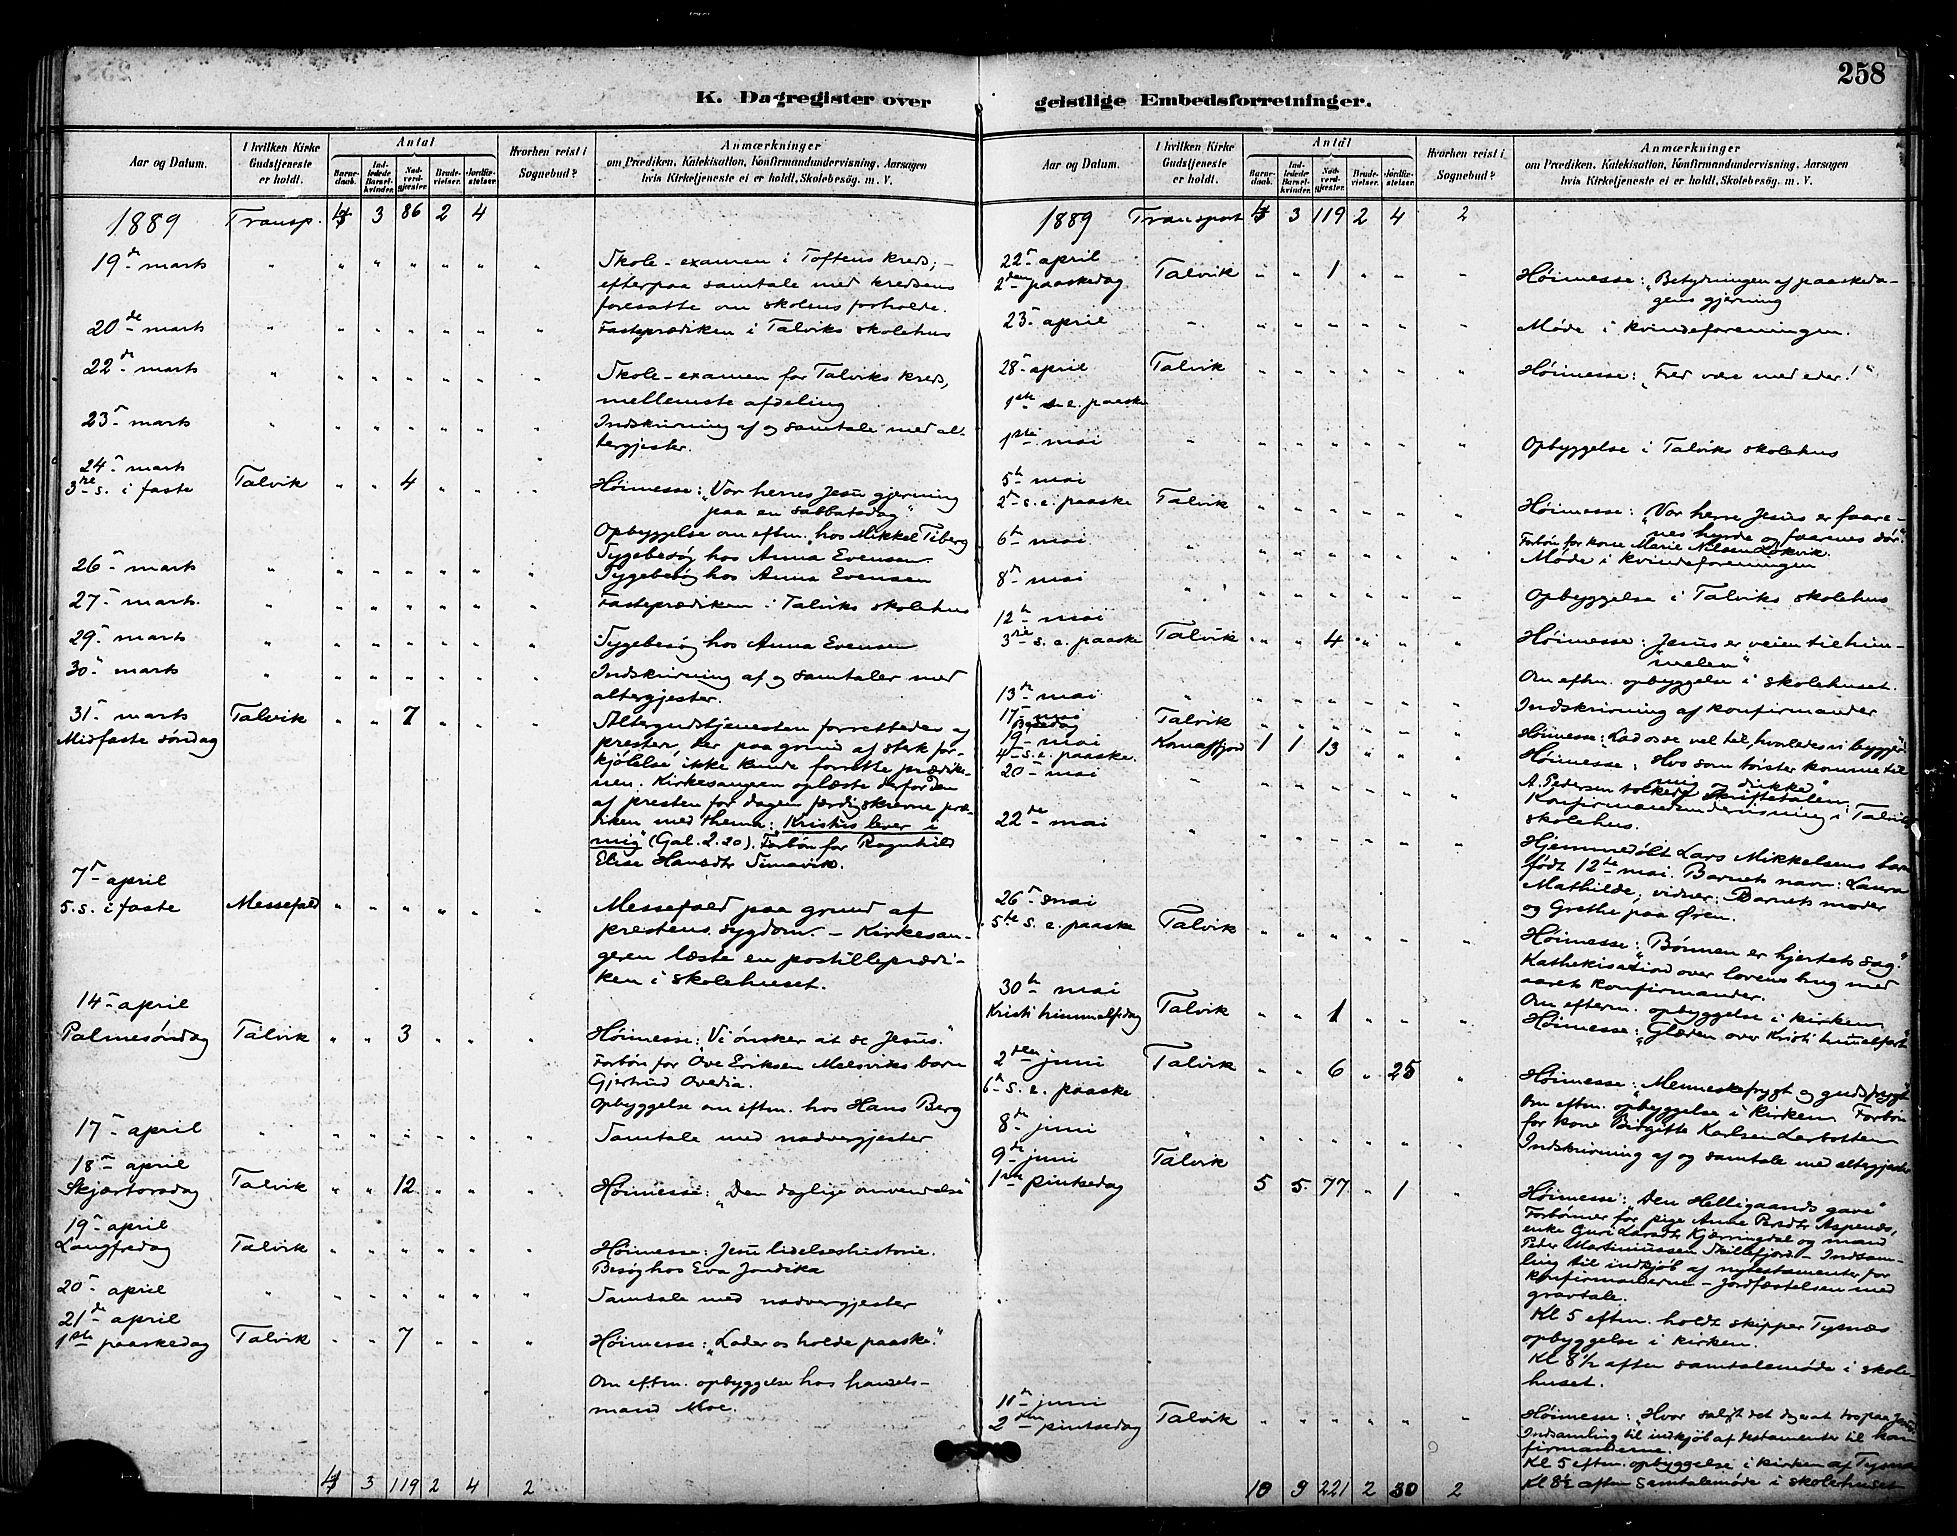 258
K. Dagregister over geistlige Embedsforretninger.
Aar og Datum.
I hvilken Kirke Gudstjeneste er holdt.
Antal
Barnedaab.
Indledede Barselkvinder.
Nadverdgjester.
Brudevielser.
Jordfæstelser.
Hvorhen reist i Sognebud?
Anmærkninger
om Prædiken, Katekisation, Konfirmandundervisning, Aarsagen
hvis Kirketjeneste ei er holdt, Skolebesøg. m. V.
1889 Transp. 4 3 86 2 4
19de marts Skole-examen i Toftens kreds,-
efterpaa samtale med kredsens
foresatte om skolens forholde.
20de marts Fasteprædiken i Talviks skolehus
22de marts Skole-examen for Talviks kreds,
mellemste afdeling
23 marts Indskrivning af og samtale med al-
tergjester.
24 marts
3re s. i faste Talvik 4 Høimesse: "Vor herres Jesu gjerning
paa en sabbatsdag"
Opbyggelse om eftm. hos Mikkel Tiberg
Sygebesøg hos Anna Evensen.
26 marts Sygebesøg hos Anna Evensen
27 marts. Fasteprædiken i Talviks skolehus
29 marts Sygebesøg hos Anna Evensen
30 marts Indskrivning af og samtaler med
altergjester.
31 marts Talvik 7 Altergudstjenesten forrettedes af
Midfaste søndag presten, der paa grund af sterk for-
kjølelse ikke kunde forrette prædike-
nen. Kirkesangeren oplæste derfor den
af presten for dagen færdigskrevne præ-
diken med thema: "Kristus lever i
mig" (Gal. 2.20). Forbøn for Ragnhild
Elise Hansdtr Simavik.
7 april
5. s. i faste Messefald Messefald paa grund af
prestens sygdom. - Kirkesan-
geren læste en postilleprædi-
ken i skolehuset.
14 april
Palmesøndag Talvik 3 Høimesse: "Vi ønsker at se Jesus."
Forbøn for Ove Eriksen Melsviks barn
Gjertrud Ovedia.
Opbyggelse om eftm. hos Hans Berg
17 april Samtale med nadvergjester
18 april
Skjærtorsdag Talvik 12 Høimesse: "Den daglige omvendelse"
19 april
Langfredag Talvik Høimesse: Jesu lidelseshistorie.
Besøg hos Eva Jondika
20 april Samtale med nadvergjester
21de april
1ste paaskedag Talvik 7 Høimesse: "Lader os holde paaske."
Om eftm. opbyggelse hos handels-
mand Moe.
4 3 119 2 4 2
Aar og Datum.
I hvilken Kirke Gudstjeneste er holdt.
Antal
Barnedaab.
Indledede Barselkvinder.
Nadverdgjester.
Brudevielser.
Jordfæstelser.
Hvorhen reist i Sognebud?
Anmærkninger
om Prædiken, Katekisation, Konfirmandundervisning, Aarsagen
hvis Kirketjeneste ei er holdt, Skolebesøg. m. V.
1889 Transport 4 3 119 2 4 2
22 april
2den paaskedag Talvik 1 Høimesse: "Betydningen af paaskeda-
gens gjerning
23 april Møde i kvindeforeningen.
28 april Talvik Høimesse: "Fred være med eder!"
1ste s. e. paaske
1ste mai Opbyggelse i Talviks skolehus
5te mai
2 s. e. paaske Talvik Høimesse: "Vor herre Jesus er faare-
nes hyrde og faarnes dør."
Forbøn for kone Marie Nilsen Lokvik.
6te mai Møde i kvindeforeningen
8de mai Opbyggelse i Talviks skolehus
12te mai
3die s. e. paaske Talvik 4 Høimesse: "Jesus er veien til him-
melen"
Om eftm. opbyggelse i skolehuset.
13te mai Indskrivning af konfirmander
17 mai
Bededag Talvik Høimesse: "Lad os se vel til, hvorledes vi bygger"
19 mai Komagfjord 1 1 13 Høimesse: "Hvo som tørster komme til
4 s. e. paaske. mig og drikke"
A. Pedersen tolkede skriftetalen.
20 mai Konfirmandundervisning i Talvik
skolehus.
22de mai Hjemmedøbt Lars Mikkelsens barn
født 12te mai. Barnets navn: Laura
Mathilde; vidner: Barnets moder
og Grethe paa Øren.
26 mai
5te s. e. paaske Talvik Høimesse: "Bønnen er hjertets sag."
Kathekisation over lovens brug med
aarets konfirmander.
Om eftern. opbyggelse i kirken
30te mai
Kristi himmelfsdag Talvik 1 Høimesse: "Glæden over Kristi himelfart"
2den juni Talvik 6 25 Høimesse: "Menneskefrygt og gudsfrygt"
6te s. e. paaske Om eftm. opbyggelse i kirken Forbøn
for kone Birgitte Karlsen Lerbotten
8de juni Indskrivning af og samtale med altergjester
9de juni Talvik
1ste pintsedag 5 5 77 1 Høimesse: "Den Helligaands gave"
Forbønner for pige Anne Persdtr Aspenæs,
enke Guri Larsdtr Kjærringdal og mand
Peder Martinussen Skillefjord - Indsam-
ling til indkjøb af nytestamenter for
konfirmanderne - Jordfæstelsen med
gravtale.
Kl 5 eftm. holdt skipper Tysnæs
opbyggelse i kirken.
Kl 8 1/2 aften samtalemøde i skole-
huset.
11te juni
2den pintsedag Talvik Høimesse: "Hvor saligt det dog er at tro paa Jesus.
Indsamling til indkjøb af testamenter til kon
firmanderne.
Kl 5 eftm. opbyggelse i kirken af Tysnæs
Kl 8 1/2 aften samtalemøde i skolehuset
10 9 221 2 30 2